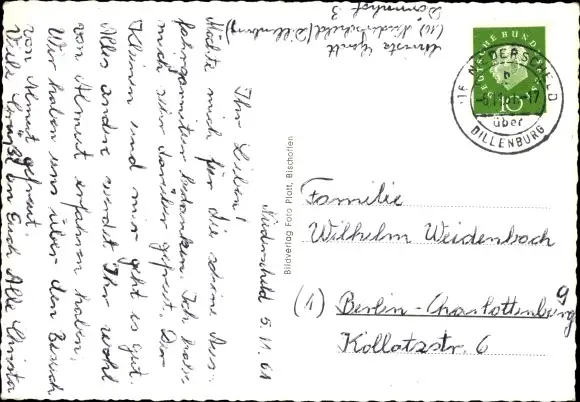 Niederscheld 5.11.61
Ihr Lieben!
Möchte mich für die schöne Aus-
fahrgarnitur bedanken. Ich habe
mich sehr darüber gefreut. Der
Kleinen und mir geht es gut.
Alles andere werdet Ihr wohl
von Almut erfahren haben.
Wir haben uns über den Besuch
von Almut gefreut.
Viele Grüße an Euch Alle Christa
Christa
(16) Niederscheld (Dillenburg)
3
Bildverlag Foto Platt, Bischoffen
DEUTSCHE BUNDESPOST
10
16 NIEDERSCHELD
b
-6.11.61-17
über
DILLENBURG
Familie
Wilhelm Weidenbach
(1) Berlin-Charlottenburg 9
Kollatzstr. 6